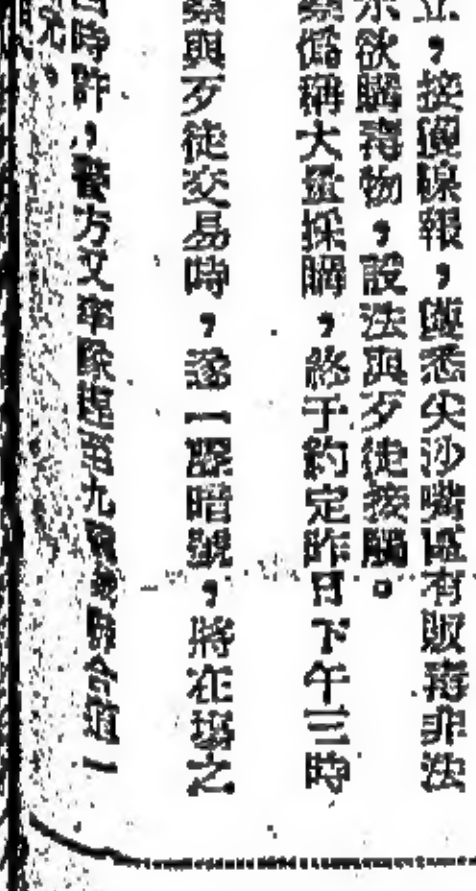 立，接獲線報，獲悉尖沙嘴區有販毒非法
示欲購毒物，設法與歹徒接觸。
察偽稱大量採購，終于約定昨日下午三時
察與歹徒交易時，遂一聲暗號，將在場之
時許，警方又率隊趕至九龍 合道一